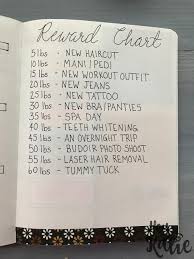 Reward Chart
5 lbs - NEW HAIRCUT
10 lbs - MANI/PEDI
15 lbs - NEW WORKOUT OUTFIT
20 lbs - NEW JEANS
25 lbs - NEW TATTOO
30 lbs - NEW BRA/PANTIES
35 lbs - SPA DAY
40 lbs - TEETH WHITENING
45 lbs - AN OVERNIGHT TRIP
50 lbs - BUDOIR PHOTO SHOOT
55 lbs - LASER HAIR REMOVAL
60 lbs - TUMMY TUCK
Katie